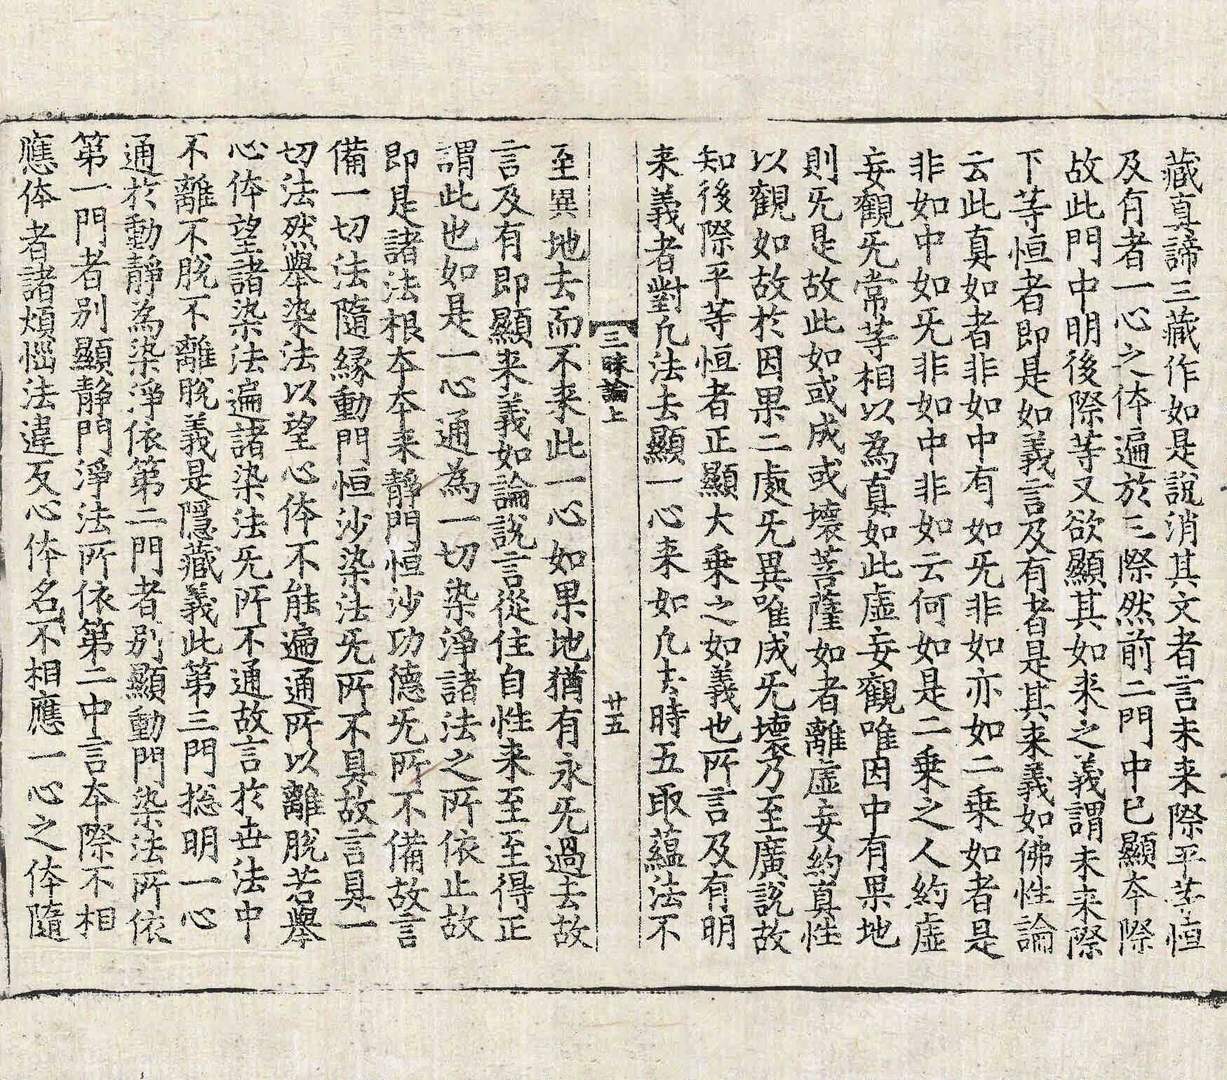 藏真諦三藏作如是說消其文者言未来際平䓁恒
及有者一心之体遍於三際然前二門中已顯夲際
故此門中明後際䓁又欲顯其如来之義謂未来際
下䓁恒者即是如義言及有者是其来義如佛性論
云此真如者非如中有如旡非如亦如二乗如者是
非如中如旡非如中非如云何如是二乗之人約虚
妄觀旡常䓁相以為真如此虚妄觀唯因中有果地
則旡是故此如或成或壞菩薩如者離虚妄約真性
以觀如故於因果二處旡異唯成旡壞乃至廣說故
知後際平䓁恒者正顯大乗之如義也所言及有明
来義者對凢法去顯一心来如凢去時五取蘊法不
三昧論上 廿五
至異地去而不来此一心如果地猶有永旡過去故
言及有即顯来義如論說言從住自性来至至得正
謂此也如是一心通為一切染淨諸法之所依止故
即是諸法根夲夲来靜門恒沙功德旡所不備故言
備一切法隨緣動門恒沙染法旡所不具故言具一
切法然舉染法以望心体不能遍通所以離脫若舉
心体望諸染法遍諸染法旡所不通故言於世法中
不離不脫不離脫義是隱藏義此第三門捴明一心
通於動靜為染淨依第二門者別顯動門染法所依
第一門者別顯靜門淨法所依第二中言夲際不相
應体者諸煩惱法違反心体名不相應一心之体隨